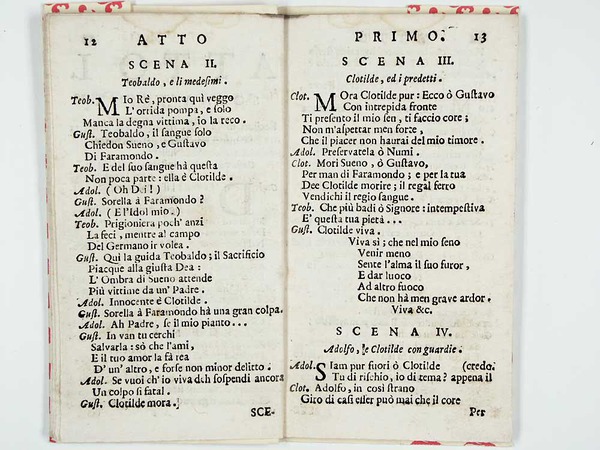 12 ATTO
SCENA II.
Teobaldo, e li medesimi.
Teob. MIo Rè, pronta quì veggo
L'orrida pompa, e solo
Manca la degna vittima, io la reco.
Gust. Teobaldo, il sangue solo
Chiedon Sueno, e Gustavo
Di Faramondo.
Teob. E del suo sangue hà questa
Non poca parte: ella è Clotilde.
Adol. (Oh Dei!)
Gust. Sorella à Faramondo?
Adol. (E l'Idol mio.)
Teob. Prigioniera poch' anzi
La feci, mentre al campo
Del Germano ir volea.
Gust. Qui la guida Teobaldo; il Sacrificio
Piacque alla giusta Dea:
L' Ombra di Sueno attende
Più vittime da un' Padre.
Adol. Innocente è Clotilde.
Gust. Sorella à Faramondo hà una gran colpa.
Adol. Ah Padre, se il mio pianto...
Gust. In van tu cerchi
Salvarla: sò che l'ami,
E il tuo amor la fà rea
D' un' altro, e forse non minor delitto.
Adol. Se vuoi ch' io viva deh sospendi ancora
Un colpo sì fatal.
Gust. Clotilde mora.
SCE-
PRIMO. 13
SCENA III.
Clotilde, ed i predetti.
Clot. MOra Clotilde pur: Ecco ò Gustavo
Con intrepida fronte
Ti presento il mio sen, ti faccio core;
Non m'aspettar men forte,
Che il piacer non haurai del mio timore.
Adol. Preservatela ò Numi.
Clot. Mori Sueno, ò Gustavo,
Per man di Faramondo; e per la tua
Dee Clotilde morire; il regal ferro
Vendichi il regio sangue.
Teob. Che più badi ò Signore: intempestiva
E' questa tua pietà...
Gust. Clotilde viva.
Viva sì; che nel mio seno
Venir meno
Sente l'alma il suo furor,
E dar luoco
Ad altro fuoco
Che non hà men grave ardor.
Viva &c.
SCENA IV.
Adolfo, e Clotilde con guardie.
Adol. SIam pur fuori ò Clotilde (credo.
Tu di rischio, io di tema? appena il
Clot. Adolfo, in così strano
Giro di casi esser può mai che il core
Per